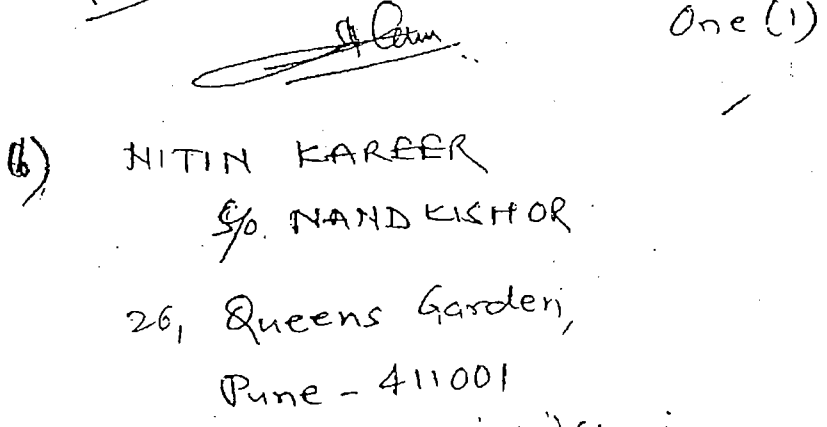 One (1)
6) NITIN KAREER
S/o. NANDKISHOR
26, Queens Garden,
Pune - 411001